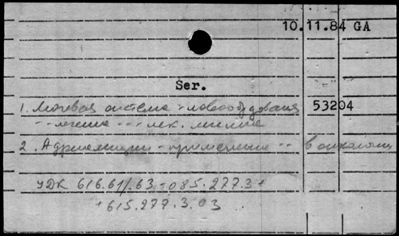 10.11.84 GA
Ser.
1. Мочевая система - новообразования 53204
-"- лечение -"- лек.
2. Адриамицин - применение -"- в онкологии
УДК 616.61/.63-085.277.3+
+615.277.3.03